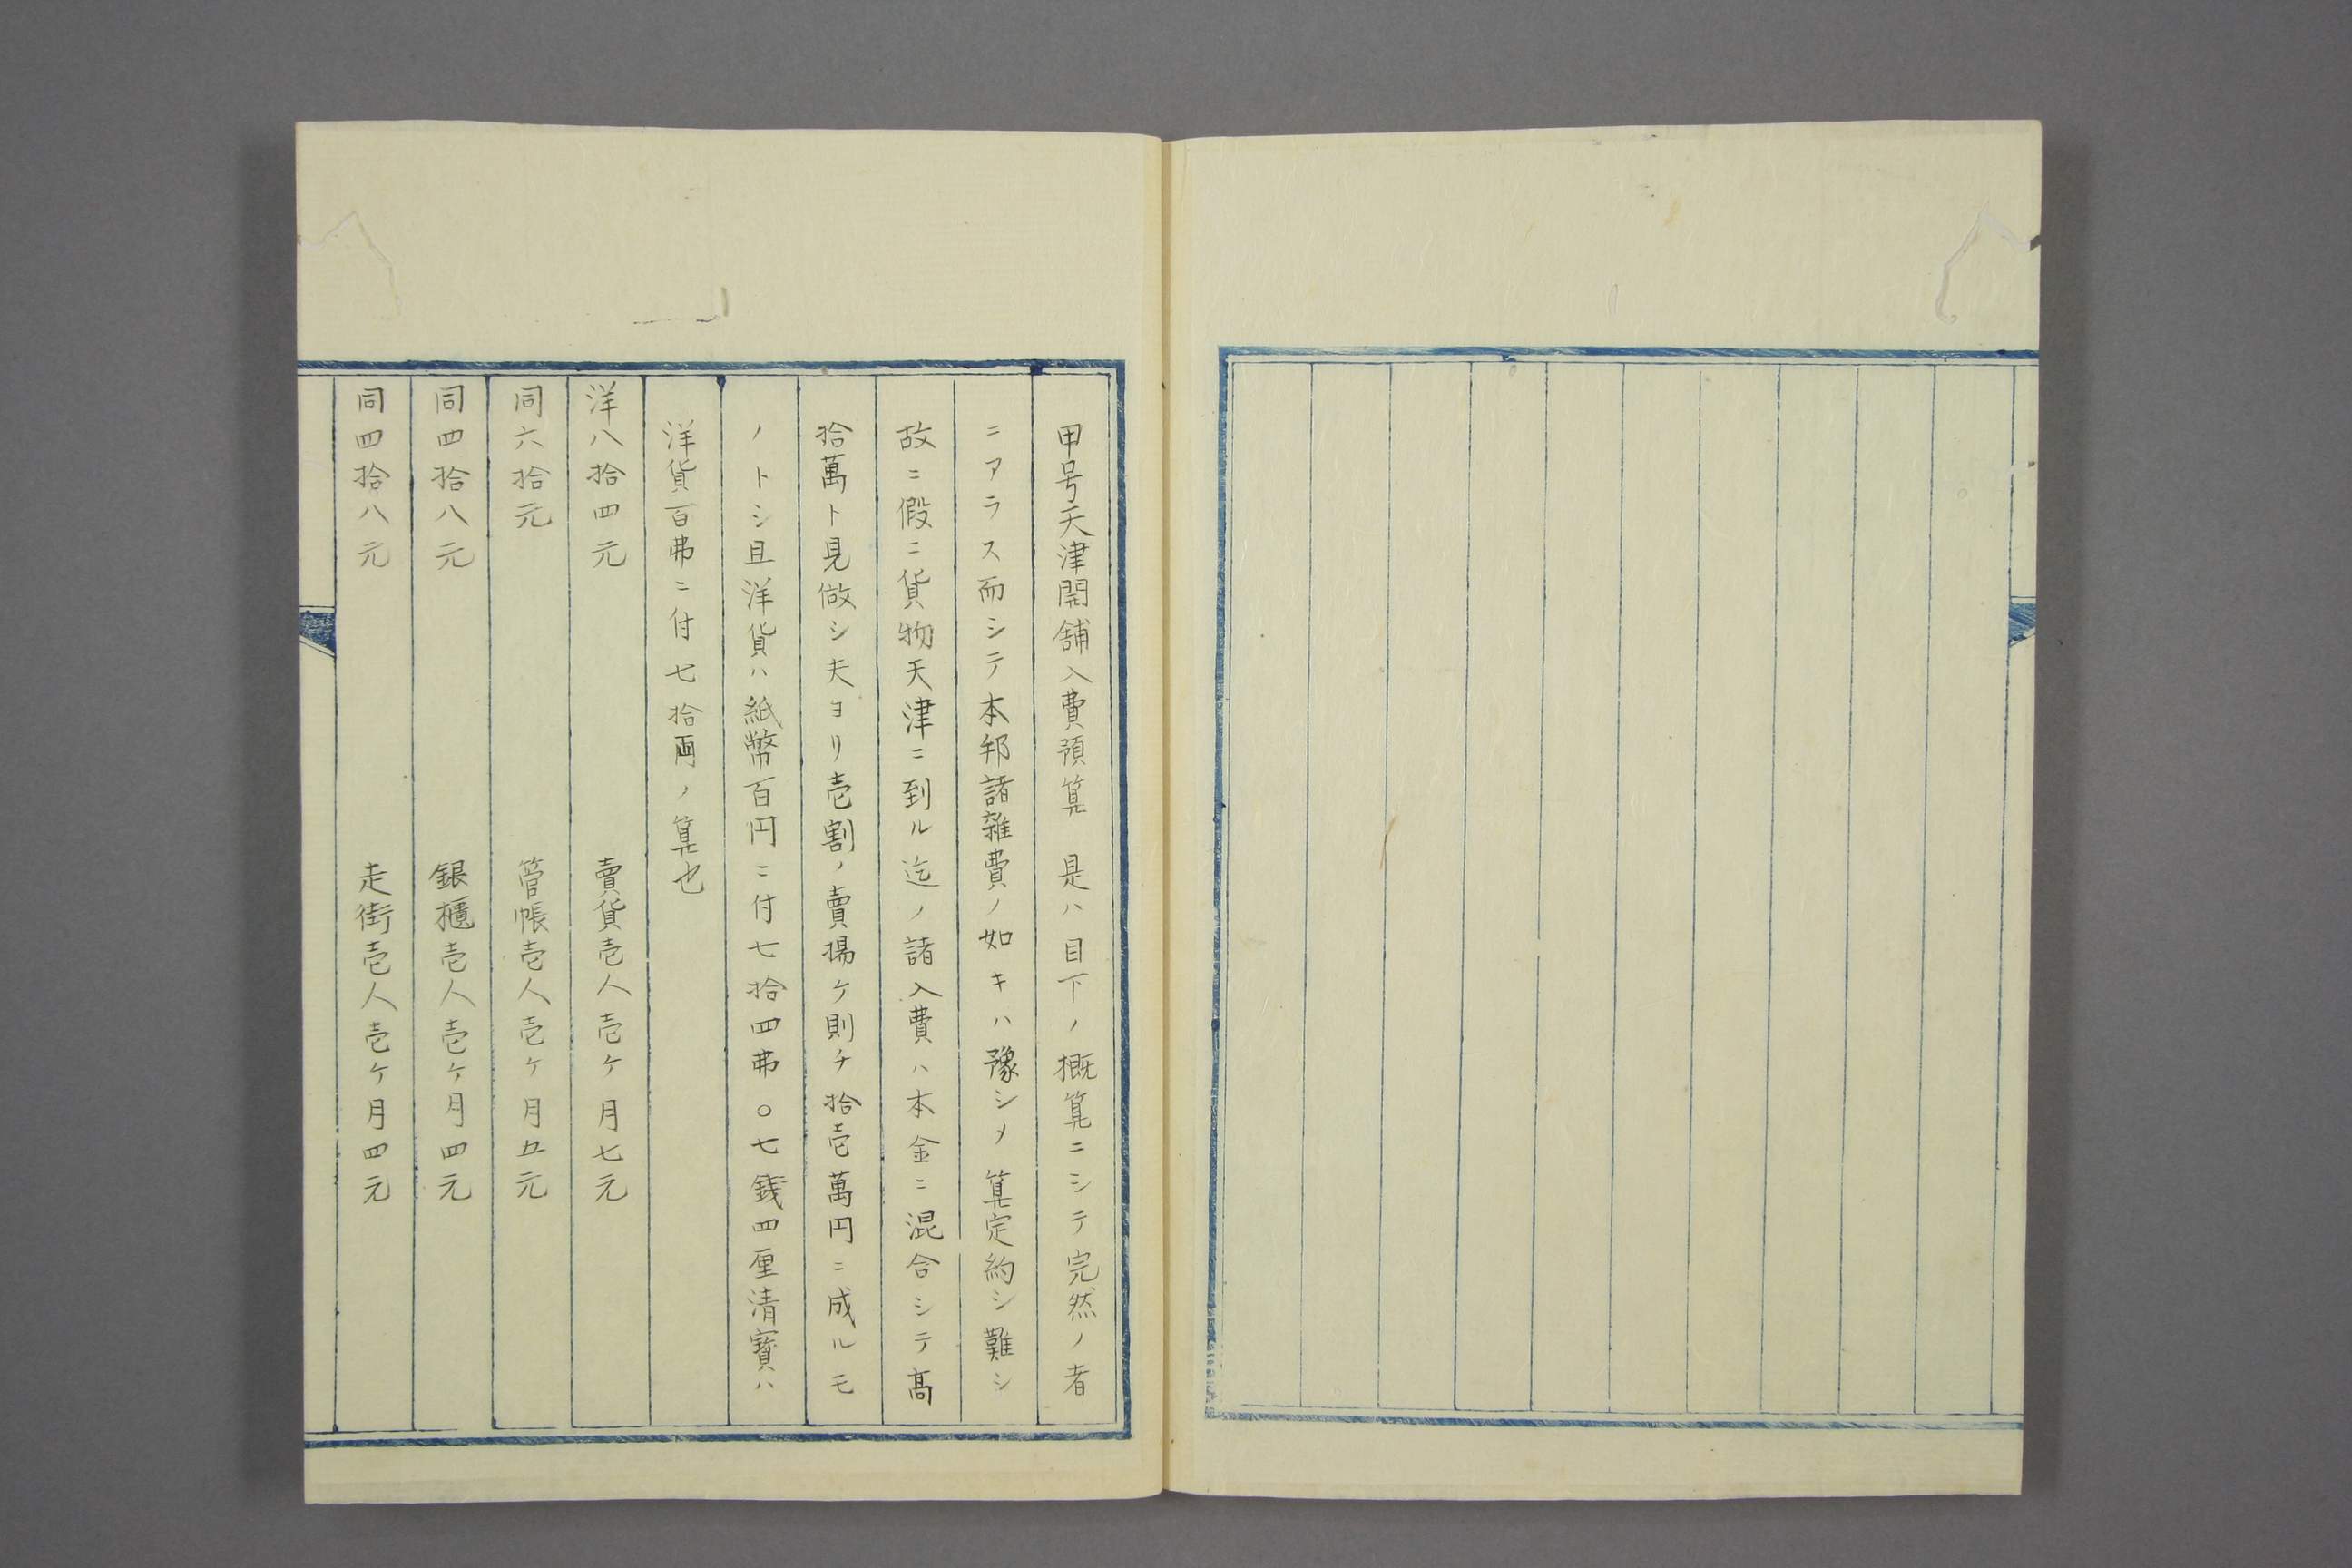 甲号天津開舗入費預算　是ハ目下ノ概算ニシテ完然ノ者
ニアラス而シテ本邦諸雑費ノ如キハ豫シメ算定約シ難シ
故ニ假ニ貨物天津ニ到ル迄ノ諸入費ハ本金ニ混合シテ髙
拾萬ト見做シ夫ヨリ壱割ノ賣揚ケ則チ拾壱萬円ニ成ルモ
ノトシ且洋貨ハ紙幣百円ニ付七拾四弗〇七銭四厘清寳ハ
洋貨百弗ニ付七拾両ノ算也
洋八拾四元　賣貨壱人壱ケ月七元
同六拾元　管帳壱人壱ケ月五元
同四拾八元　銀櫃壱人壱ケ月四元
同四拾八元　走街壱人壱ケ月四元